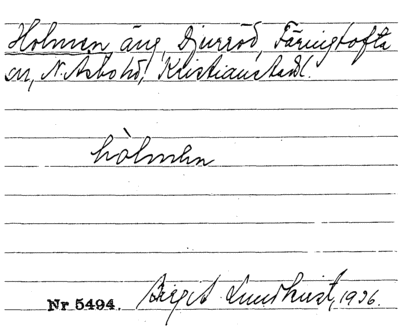 Holmen, äng, Djurröd, Färingtofta
sn, N. Åsbo hd, Kristianstads l.
hòlmən
Nr 5494. Birgit Lundkvist, 1936.